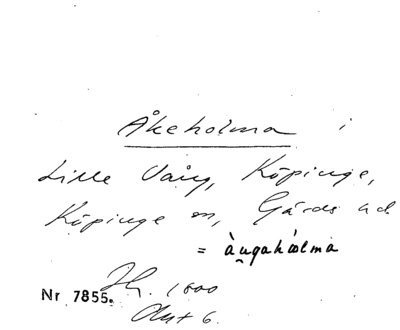 Åkeholma i
Lille Vång, Köpinge,
Köpinge sn, Gärds hd
= àu̯gahòlma
Nr 7855. 1800
Akt 6.